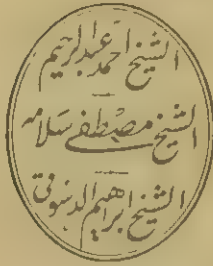 الشيخ احمد عبدالرحيم
الشيخ مصطفى سلامه
الشيخ ابراهيم الدسوقي